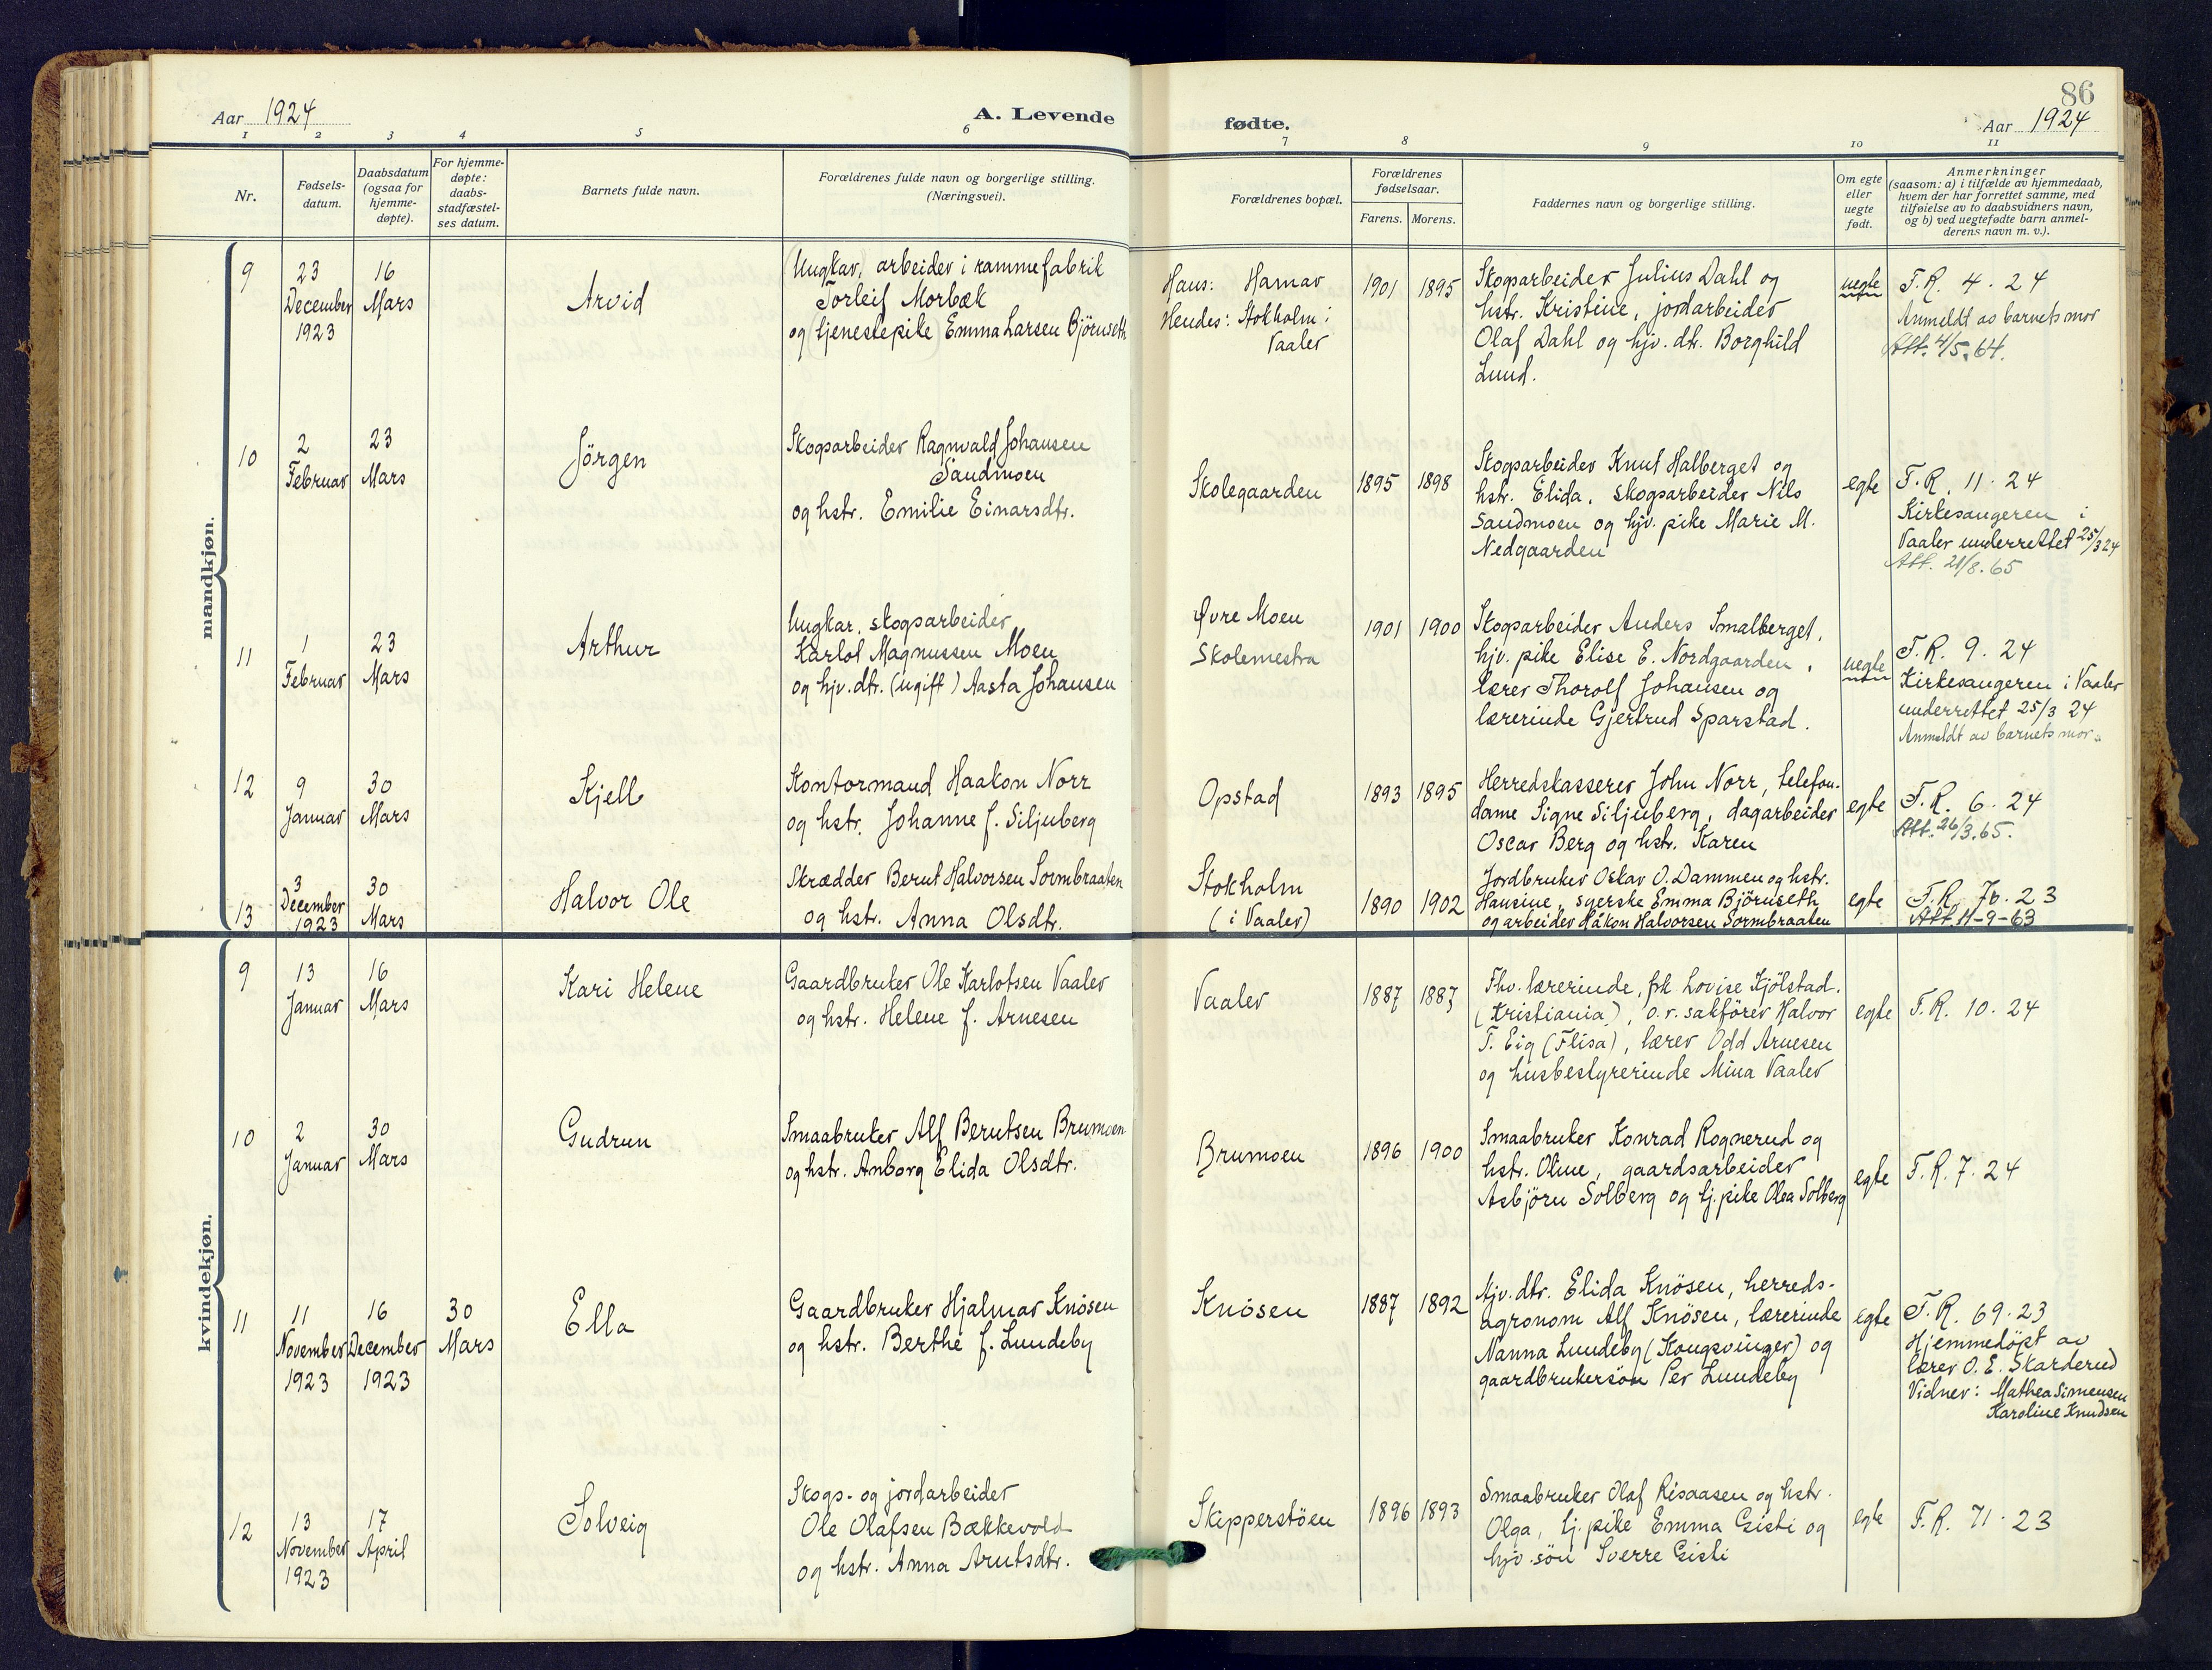 86
Aar 1924
A. Levende
fødte.
Aar 1924
1 2 3 4 5 6 7 8 9 10 11
Nr.
Fødsels-
datum.
Daabsdatum
(ogsaa for
hjemme-
døpte).
For hjemme-
døpte:
daabs-
stadfæstel-
ses datum.
Barnets fulde navn.
Forældrenes fulde navn og borgerlige stilling.
(Næringsvei).
Forældrenes bopæl.
Forældrenes
fødselsaar.
Farens. Morens.
Faddernes navn og borgerlige stilling.
Om egte
eller
uegte
født.
Anmerkninger
(saasom: a) i tilfælde av hjemmedaab,
hvem der har forrettet samme, med
tilføielse av to daabsvidners navn,
og b) ved uegtefødte barn anmel-
derens navn m. v.).
mandkjøn.
9
23
December
1923
16
Mars
Arvid
Ungkar, arbeider i rammefabrik
Torleif Morbæk
og tjenestepike Emma Larsen Björnseth
Hans: Hamar
Hendes: Stokholm i
Vaaler
1901 1895
Skogsarbeider Julius Dahl og
hstr. Kristine, jordarbeider
Olaf Dahl og hjv. dtr. Borghild
Lund.
uegte
F.R. 4. 24
Anmeldt av barnets mor
Att. 4/5. 64.
10
2
Februar
23
Mars
Jörgen
Skogsarbeider Ragnvald Johansen
Sandmoen
og hstr. Emilie Einarsdtr.
Skolegaarden
1895 1898
Skogsarbeider Knut Halberget og
hstr. Elida, skogsarbeider Nils
Sandmoen og hjv. pike Marie M.
Nedgaarden
egte
F.R. 11. 24
Kirkesangeren i
Vaaler underrettet 25/3 24
Att. 21/8. 65
11
1
Februar
23
Mars
Arthur
Ungkar, skogsarbeider
Karlot Magnussen Moen
og hjv. dtr. (ugift) Aasta Johansen
Øvre Moen
Skolemestra
1901 1900
Skogsarbeider Anders Smalberget,
hjv. pike Elise E. Nordgaarden,
lærer Thorolf Johansen og
lærerinde Gjertrud Sparstad.
uegte
F.R. 9. 24
Kirkesangeren i Vaaler
underrettet 25/3 24
Anmeldt av barnets mor.
12
9
Januar
30
Mars
Kjell
Kontormand Haakon Norr
og hstr. Johanne f. Siljuberg
Opstad
1893 1895
Herredskasserer John Norr, telefon-
dame Signe Siljuberg, dagarbeider
Oscar Berg og hstr. Karen
egte
F.R. 6. 24
Att. 26/3. 65.
13
3
December
1923
30
Mars
Halvor Ole
Skrædder Bernt Halvorsen Sormbraaten
og hstr. Anna Olsdtr.
Stokholm
(i Vaaler)
1890 1902
Jordbruker Oskar O. Dammen og hstr.
Hansine, syerske Emma Björnseth
og arbeider Håkon Halvorsen Sormbraaten
egte
F.R. 76. 23
Att. 11-9-63
kvindekjøn.
9
13
Januar
16
Mars
Kari Helene
Gaardbruker Ole Karlotsen Vaaler
og hstr. Helene f. Arnesen
Vaaler
1887 1887
Fhv. lærerinde, frk Lovise Kjölstad.
(Kristiania), o.r. sakförer Halvor
T. Eig (Flisa), lærer Odd Arnesen
og husbestyrerinde Mina Vaaler
egte
F.R. 10. 24
10
2
Januar
30
Mars
Gudrun
Smaabruker Alf Berntsen Brumoen
og hstr. Anborg Elida Olsdtr.
Brumoen
1896 1900
Smaabruker Konrad Rognerud og
hstr. Oline, gaardsarbeider
Asbjörn Solberg og tj. pike Olea Solberg
egte
F.R. 7. 24
11
11
November
1923
16
December
1923
30
Mars
Ella
Gaardbruker Hjalmar Knösen
og hstr. Berthe f. Lundeby
Knösen
1887 1892
Hjv. dtr. Elida Knösen, herreds-
agronom Alf Knösen, lærerinde
Nanna Lundeby (Kongsvinger) og
gaardbrukersön Per Lundeby
egte
F.R. 69. 23
Hjemmedöpt av
lærer O. E. Skarderud
Vidner: Mathea Simensen
Karoline Knudsen
12
13
November
1923
17
April
Solveig
Skogs- og jordarbeider
Ole Olafsen Bækkevold
og hstr. Anna Arntsdtr.
Skipperstöen
1896 1893
Smaabruker Olaf Risaasen og hstr.
Olga, tj. pike Emma Gisti og
hjv. sön Sverre Gisti
egte
F.R. 71. 23